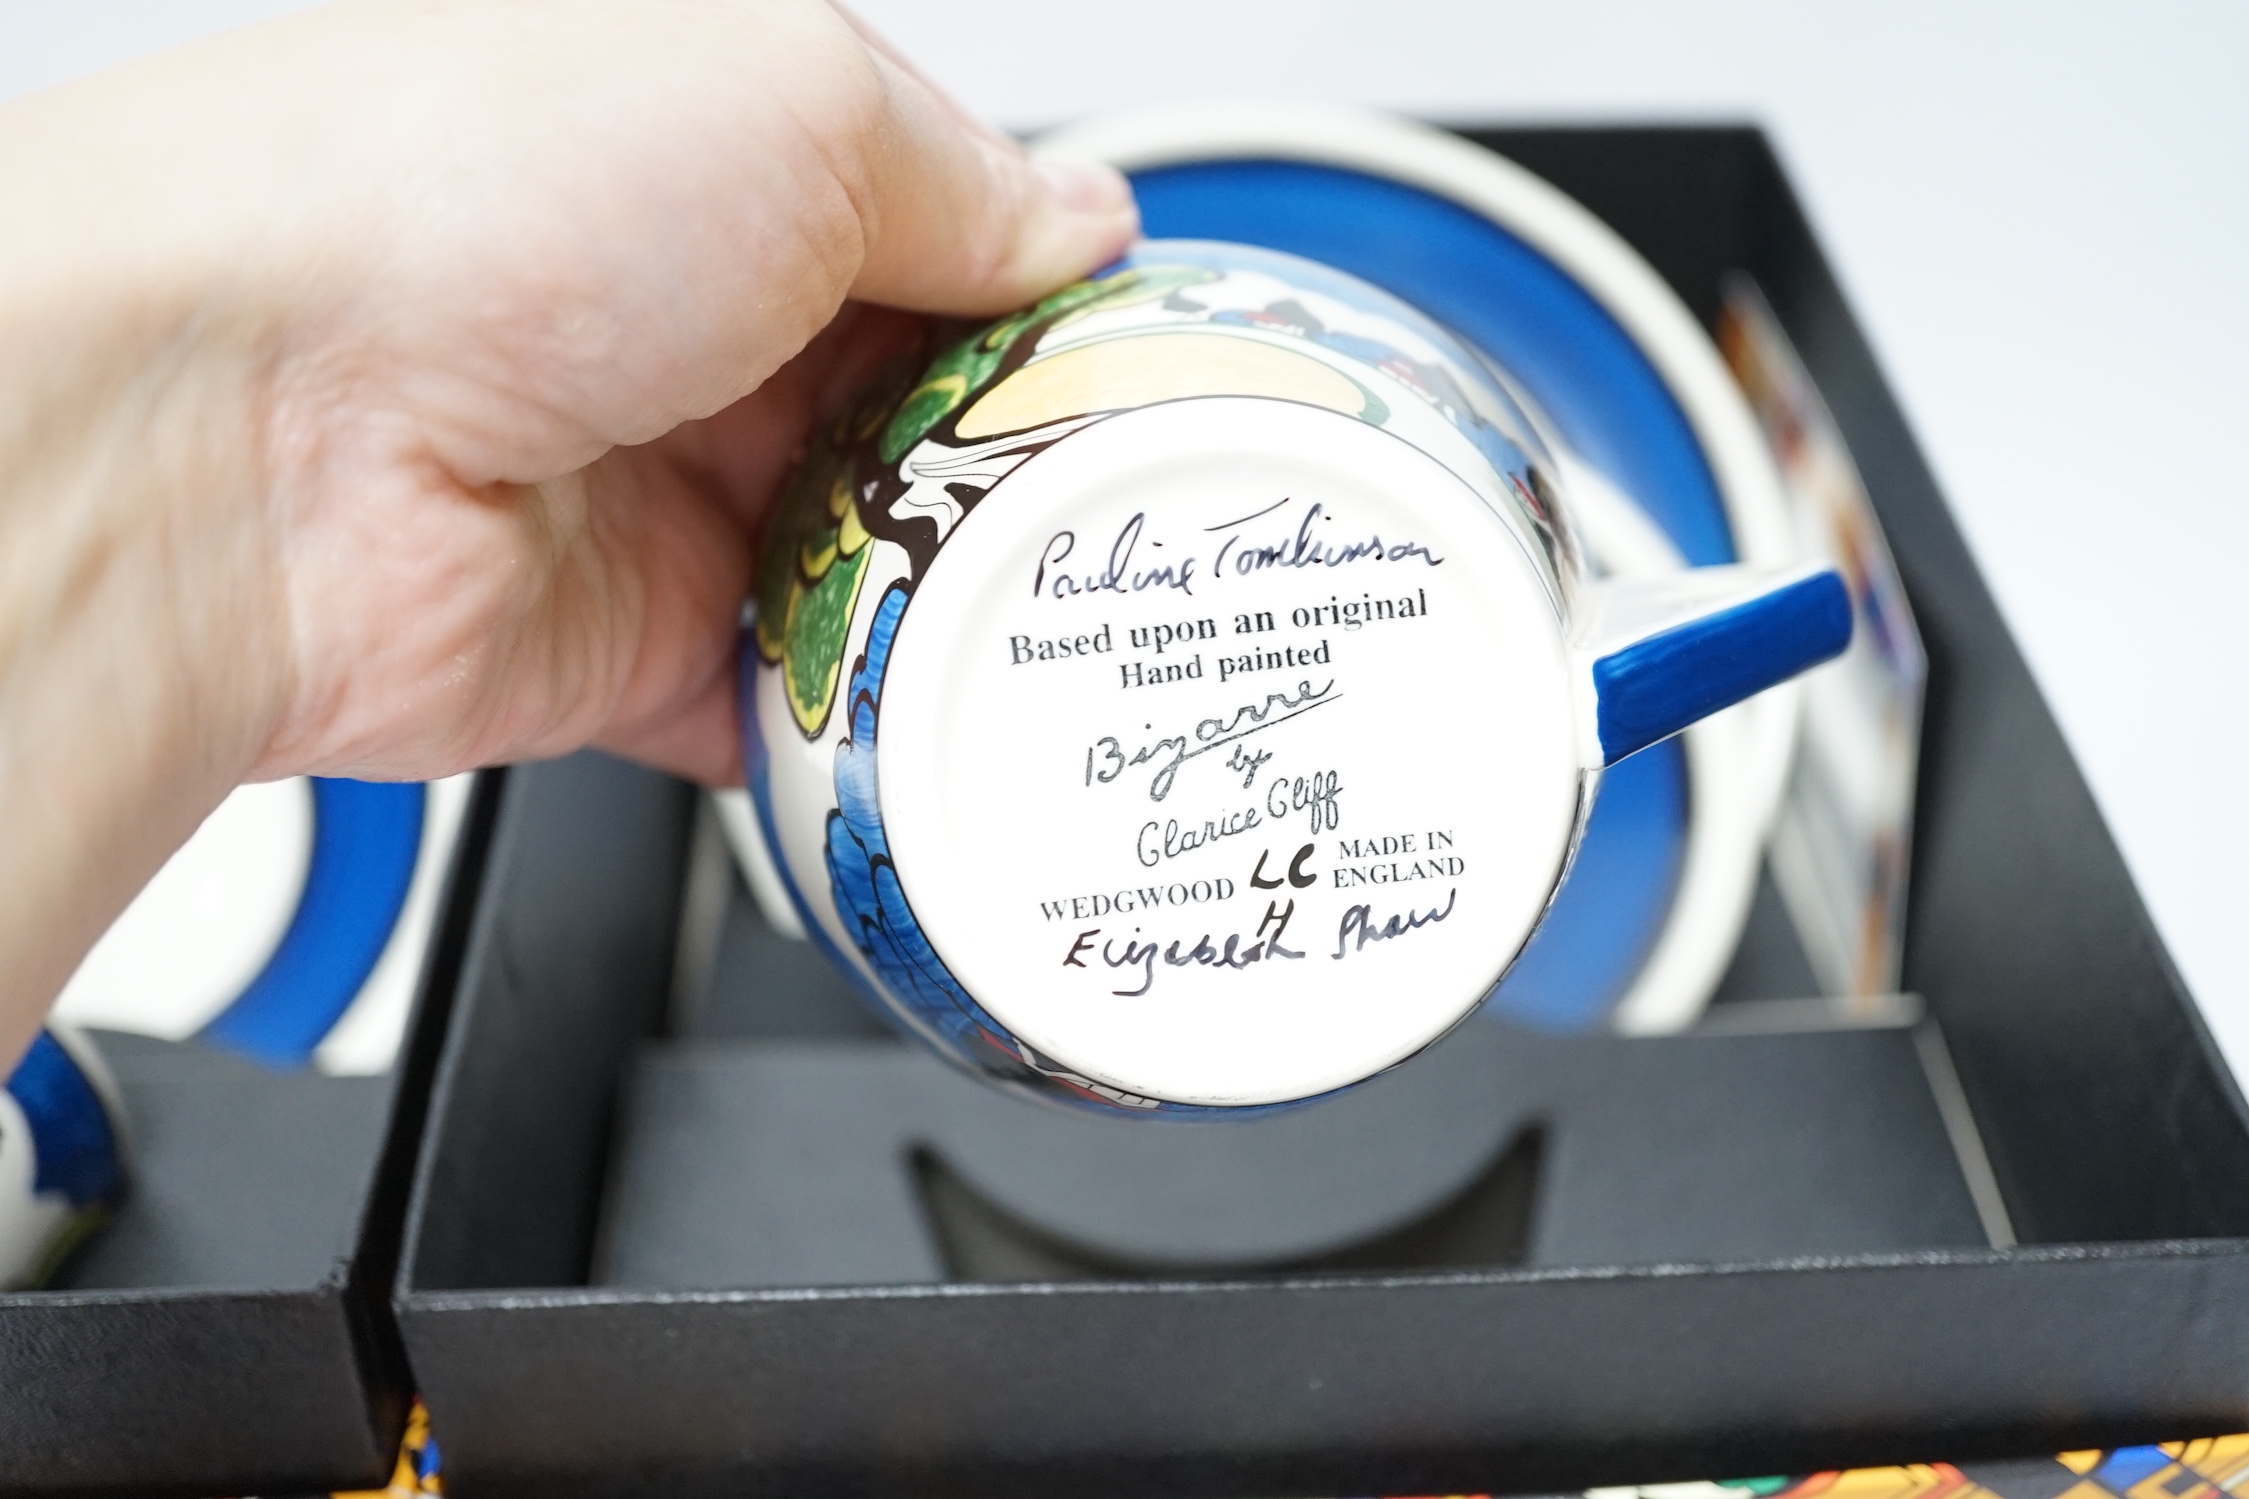 Pauline Tomkinson
Based upon an original
Hand painted
Bizarre
by
Clarice Cliff
WEDGWOOD LC MADE IN ENGLAND
H
Elizabeth Shaw